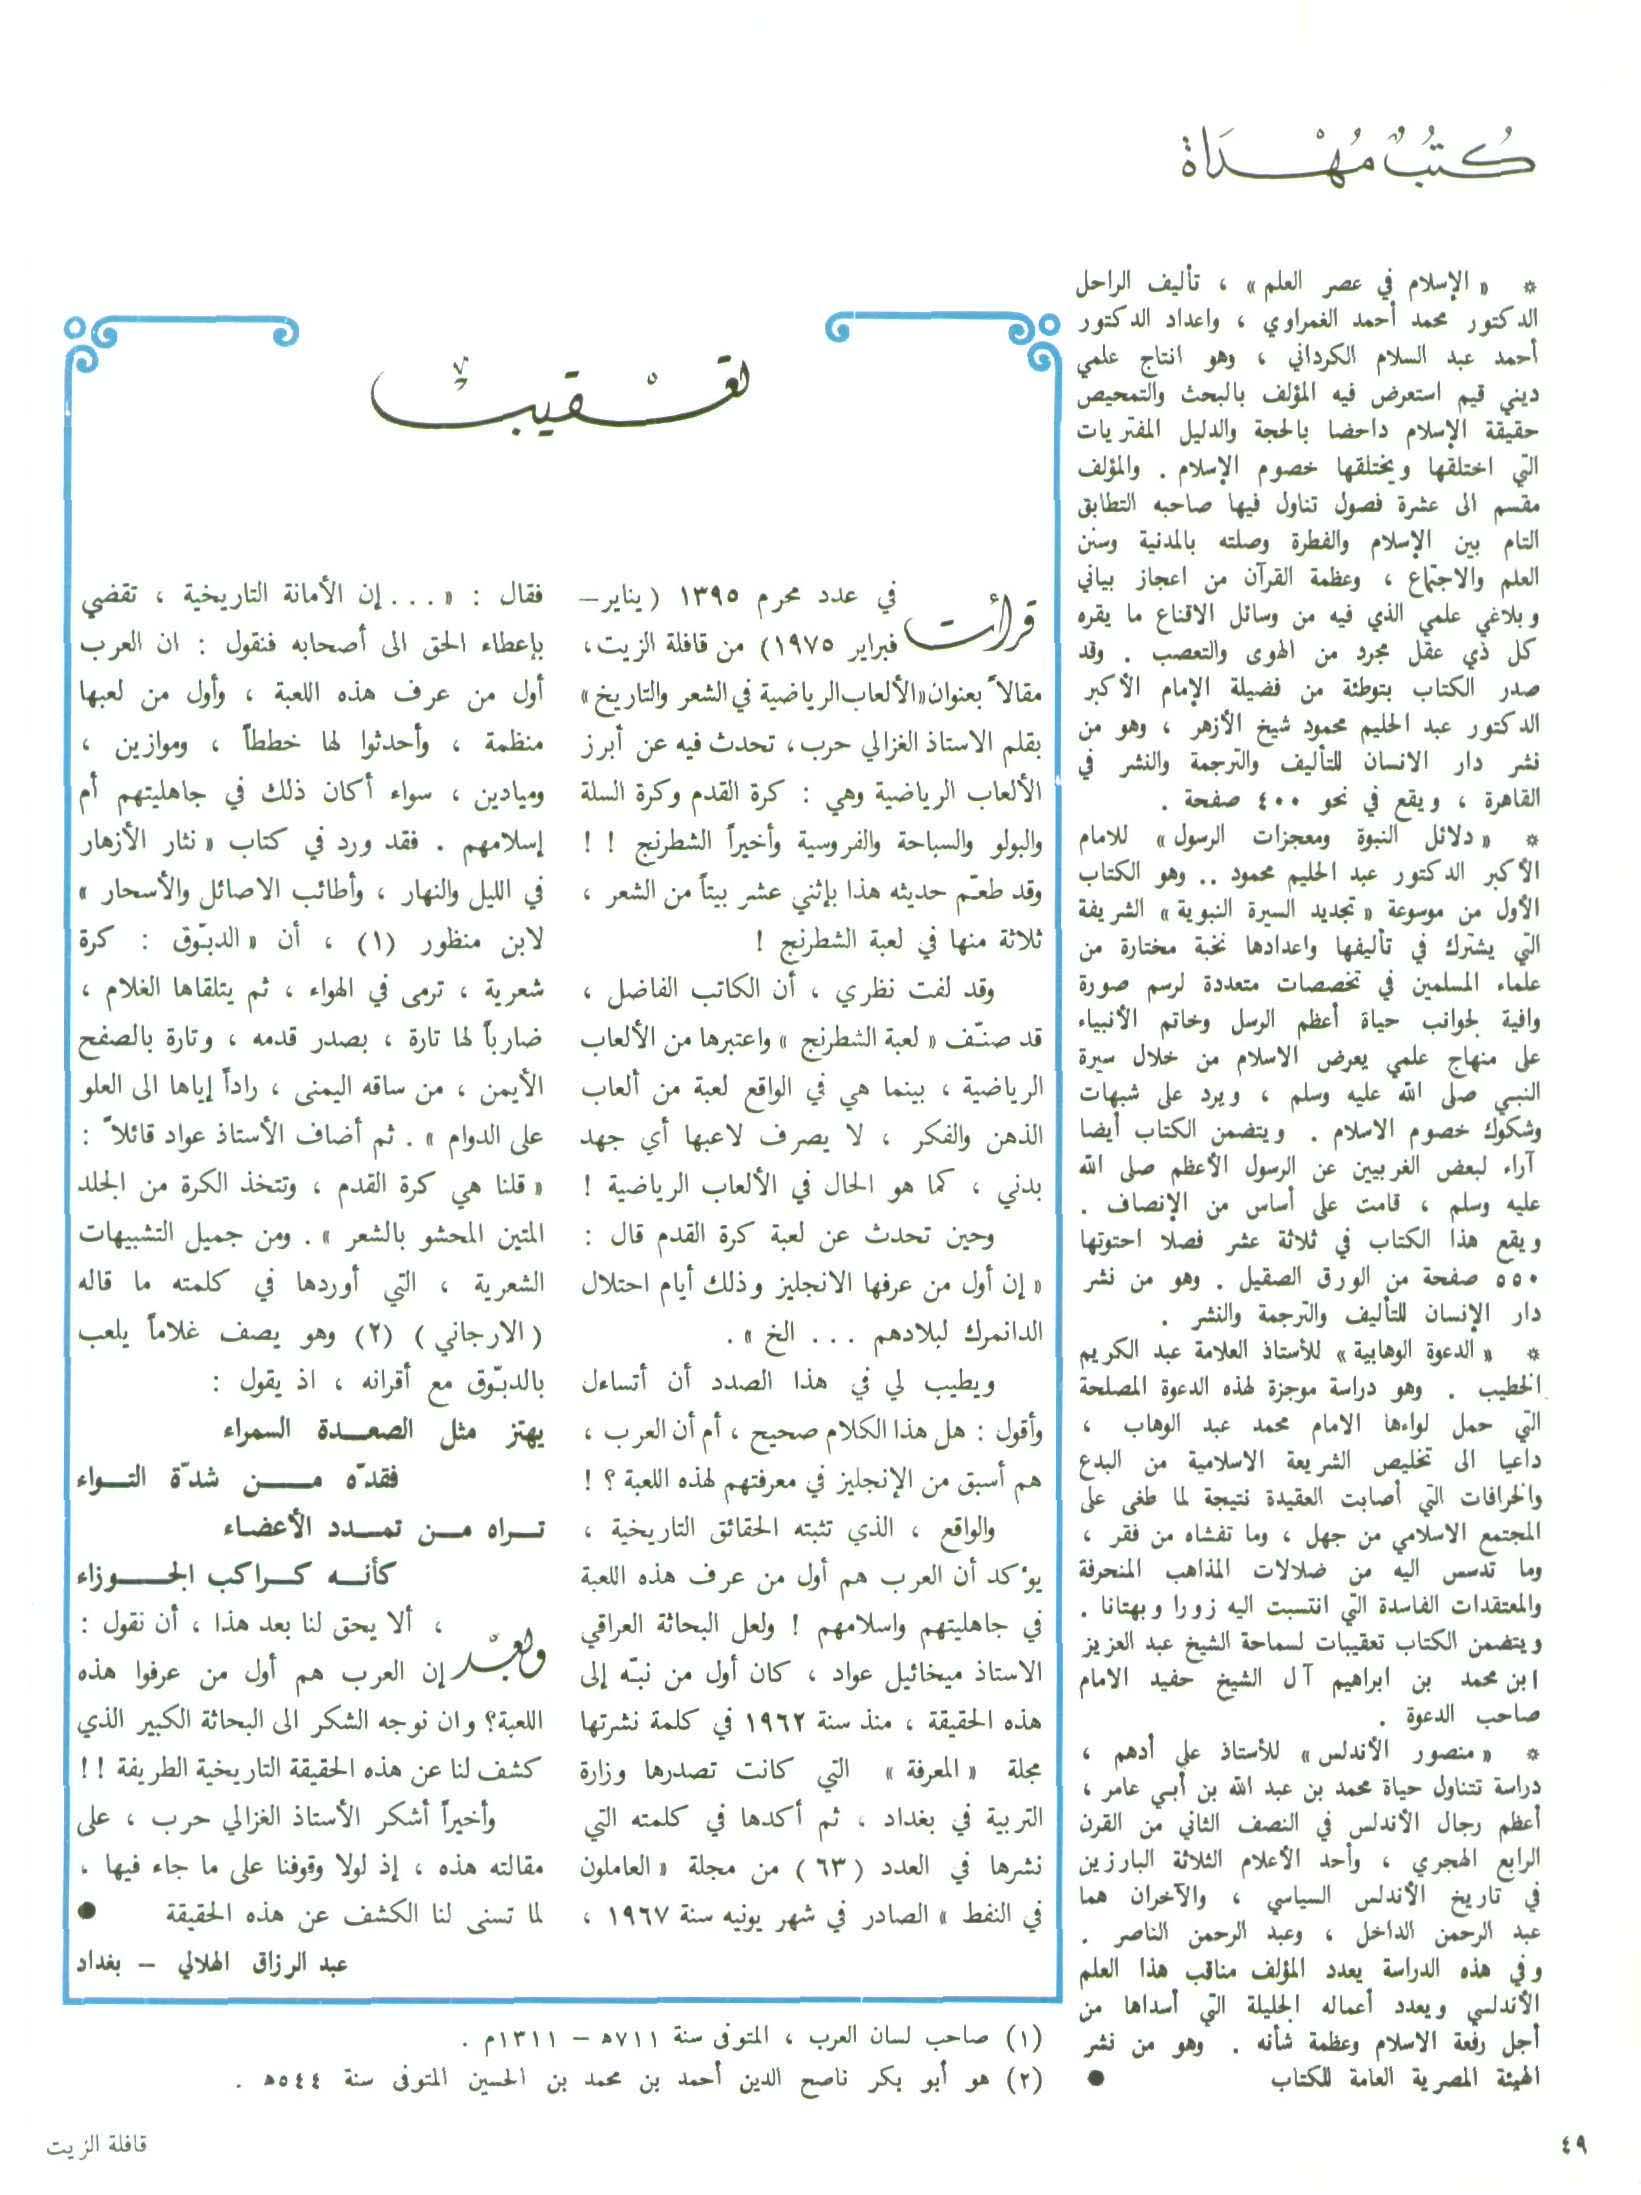 كُتُبٌ مُهْداة
* «الإسلام في عصر العلم» ، تأليف الراحل
الدكتور محمد أحمد الغمراوي ، واعداد الدكتور
أحمد عبد السلام الكرداني ، وهو انتاج علمي
ديني قيم استعرض فيه المؤلف بالبحث والتمحيص
حقيقة الإسلام داحضا بالحجة والدليل المفتريات
التي اختلقها ويختلقها خصوم الإسلام . والمؤلف
مقسم الى عشرة فصول تناول فيها صاحبه التطابق
التام بين الإسلام والفطرة وصلته بالمدنية وسنن
العلم والاجتماع ، وعظمة القرآن من اعجاز بياني
وبلاغي علمي الذي فيه من وسائل الاقناع ما يقره
كل ذي عقل مجرد من الهوى والتعصب . وقد
صدر الكتاب بتوطئة من فضيلة الإمام الأكبر
الدكتور عبد الحليم محمود شيخ الأزهر ، وهو من
نشر دار الانسان للتأليف والترجمة والنشر في
القاهرة ، ويقع في نحو ٤٠٠ صفحة .
* «دلائل النبوة ومعجزات الرسول» للامام
الأكبر الدكتور عبد الحليم محمود .. وهو الكتاب
الأول من موسوعة «تجديد السيرة النبوية» الشريفة
التي يشترك في تأليفها واعدادها نخبة مختارة من
علماء المسلمين في تخصصات متعددة لرسم صورة
وافية لجوانب حياة أعظم الرسل وخاتم الأنبياء
على منهاج علمي يعرض الاسلام من خلال سيرة
النبي صلى الله عليه وسلم ، ويرد على شبهات
وشكوك خصوم الاسلام . ويتضمن الكتاب أيضا
آراء لبعض الغربيين عن الرسول الأعظم صلى الله
عليه وسلم ، قامت على أساس من الإنصاف .
ويقع هذا الكتاب في ثلاثة عشر فصلا احتوتها
٥٥٠ صفحة من الورق الصقيل . وهو من نشر
دار الإنسان للتأليف والترجمة والنشر .
* «الدعوة الوهابية» للأستاذ العلامة عبد الكريم
الخطيب . وهو دراسة موجزة لهذه الدعوة المصلحة
التي حمل لواءها الامام محمد عبد الوهاب ،
داعيا الى تخليص الشريعة الاسلامية من البدع
والخرافات التي أصابت العقيدة نتيجة لما طغى على
المجتمع الاسلامي من جهل ، وما تفشاه من فقر ،
وما تدسس اليه من ضلالات المذاهب المنحرفة
والمعتقدات الفاسدة التي انتسبت اليه زورا وبهتانا .
ويتضمن الكتاب تعقيبات لسماحة الشيخ عبد العزيز
ابن محمد بن ابراهيم آل الشيخ حفيد الامام
صاحب الدعوة .
* «منصور الأندلس» للأستاذ علي أدهم ،
دراسة تتناول حياة محمد بن عبد الله بن أبي عامر ،
أعظم رجال الأندلس في النصف الثاني من القرن
الرابع الهجري ، وأحد الأعلام الثلاثة البارزين
في تاريخ الأندلس السياسي ، والآخران هما
عبد الرحمن الداخل ، وعبد الرحمن الناصر .
وفي هذه الدراسة يعدد المؤلف مناقب هذا العلم
الأندلسي ويعدد أعماله الجليلة التي أسداها من
أجل رفعة الاسلام وعظمة شأنه . وهو من نشر
الهيئة المصرية العامة للكتاب ●
تعْقيبٌ
قرأت في عدد محرم ١٣٩٥ (يناير–
فبراير ١٩٧٥) من قافلة الزيت ،
مقالاً بعنوان «الألعاب الرياضية في الشعر والتاريخ»
بقلم الاستاذ الغزالي حرب ، تحدث فيه عن أبرز
الألعاب الرياضية وهي : كرة القدم وكرة السلة
والبولو والسباحة والفروسية وأخيراً الشطرنج ! !
وقد طعّم حديثه هذا بإثني عشر بيتاً من الشعر ،
ثلاثة منها في لعبة الشطرنج !
وقد لفت نظري ، أن الكاتب الفاضل ،
قد صنّف « لعبة الشطرنج » واعتبرها من الألعاب
الرياضية ، بينما هي في الواقع لعبة من ألعاب
الذهن والفكر ، لا يصرف لاعبها أي جهد
بدني ، كما هو الحال في الألعاب الرياضية !
وحين تحدث عن لعبة كرة القدم قال :
« إن أول من عرفها الانجليز وذلك أيام احتلال
الدانمرك لبلادهم ... الخ » .
ويطيب لي في هذا الصدد أن أتساءل
وأقول : هل هذا الكلام صحيح ، أم أن العرب ،
هم أسبق من الإنجليز في معرفتهم لهذه اللعبة ؟ !
والواقع ، الذي تثبته الحقائق التاريخية ،
يؤكد أن العرب هم أول من عرف هذه اللعبة
في جاهليتهم واسلامهم ! ولعل البحاثة العراقي
الاستاذ ميخائيل عواد ، كان أول من نبّه إلى
هذه الحقيقة ، منذ سنة ١٩٦٢ في كلمة نشرتها
مجلة «المعرفة» التي كانت تصدرها وزارة
التربية في بغداد ، ثم أكدها في كلمته التي
نشرها في العدد (٦٣) من مجلة «العاملون
في النفط » الصادر في شهر يونيه سنة ١٩٦٧ ،
فقال : «... إن الأمانة التاريخية ، تقضي
بإعطاء الحق الى أصحابه فنقول : ان العرب
أول من عرف هذه اللعبة ، وأول من لعبها
منظمة ، وأحدثوا لها خططاً ، وموازين ،
وميادين ، سواء أكان ذلك في جاهليتهم أم
إسلامهم . فقد ورد في كتاب « نثار الأزهار
في الليل والنهار ، وأطائب الاصائل والأسحار »
لابن منظور (١) ، أن «الدبّوق : كرة
شعرية ، ترمى في الهواء ، ثم يتلقاها الغلام ،
ضارباً لها تارة ، بصدر قدمه ، وتارة بالصفح
الأيمن ، من ساقه اليمنى ، راداً إياها الى العلو
على الدوام » . ثم أضاف الأستاذ عواد قائلاً :
« قلنا هي كرة القدم ، وتتخذ الكرة من الجلد
المتين المحشو بالشعر » . ومن جميل التشبيهات
الشعرية ، التي أوردها في كلمته ما قاله
(الارجاني) (٢) وهو يصف غلاماً يلعب
بالدبّوق مع أقرانه ، اذ يقول :
يهتز مثل الصعدة السمراء
فقدّه من شدّة التواء
تراه من تمدد الأعضاء
كأنه كراكب الجوزاء
وبعْد ، ألا يحق لنا بعد هذا ، أن نقول :
إن العرب هم أول من عرفوا هذه
اللعبة؟ وان نوجه الشكر الى البحاثة الكبير الذي
كشف لنا عن هذه الحقيقة التاريخية الطريفة !!
وأخيراً أشكر الأستاذ الغزالي حرب ، على
مقالته هذه ، إذ لولا وقوفنا على ما جاء فيها ،
لما تسنى لنا الكشف عن هذه الحقيقة ●
عبد الرزاق الهلالي – بغداد
(١) صاحب لسان العرب ، المتوفى سنة ٧١١ه – ١٣١١م .
(٢) هو أبو بكر ناصح الدين أحمد بن محمد بن الحسين المتوفى سنة ٥٤٤ه .
٤٩
قافلة الزيت